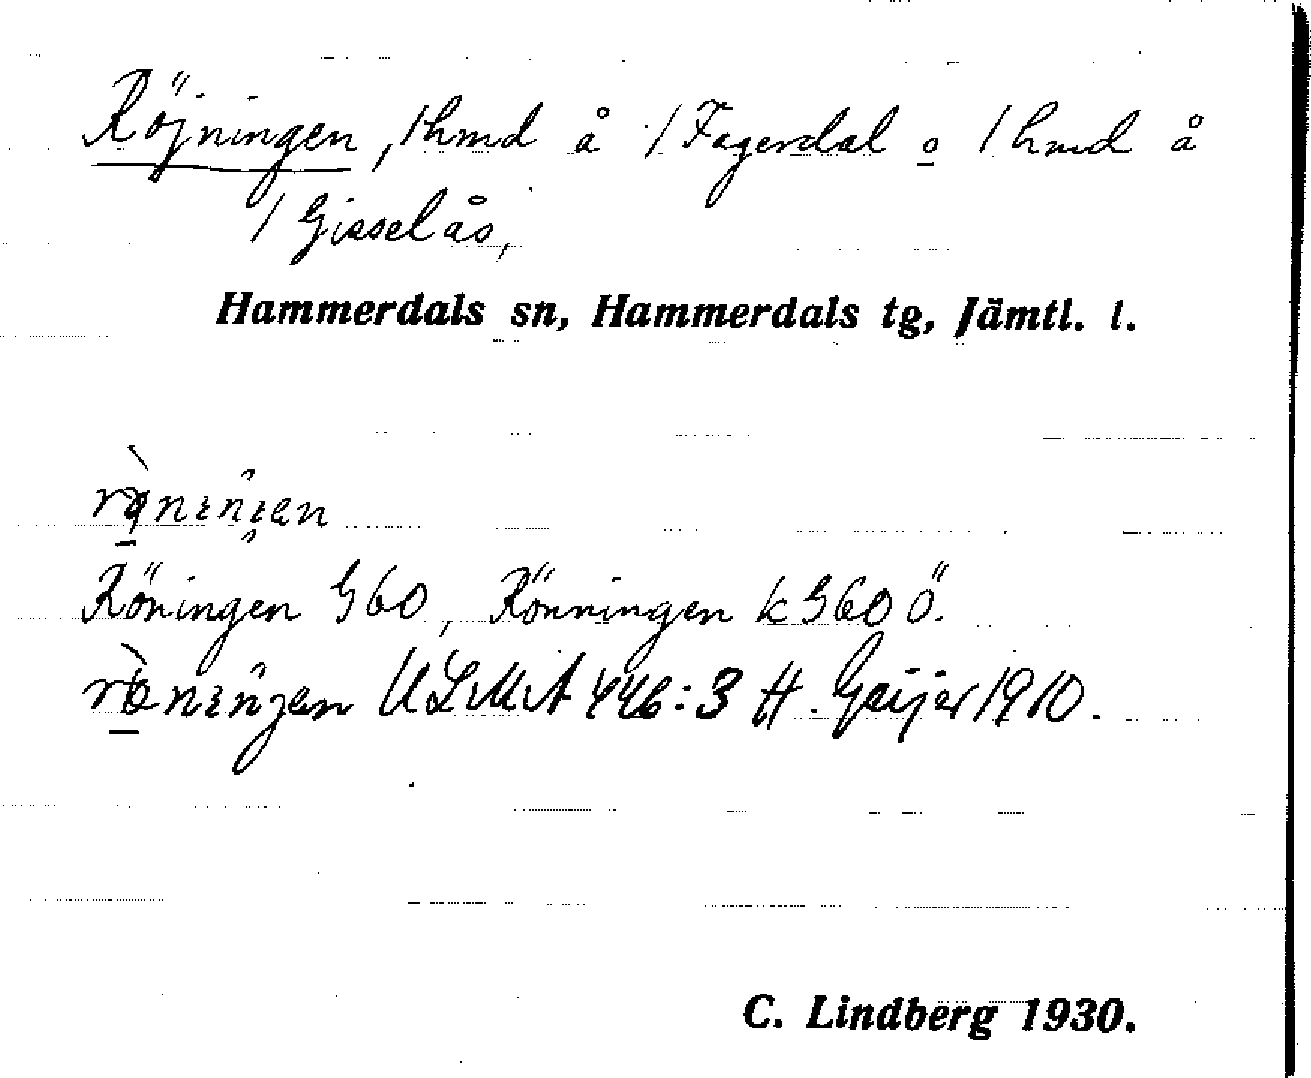 Röjningen, /hmd å /Fagerdal o /hmd å
/Gisselås,
Hammerdals sn, Hammerdals tg, Jämtl. l.
Röningen G60, Rönningen k G60 Ö.
ULMA 446:3 H. Geijer 1910.
C. Lindberg 1930.